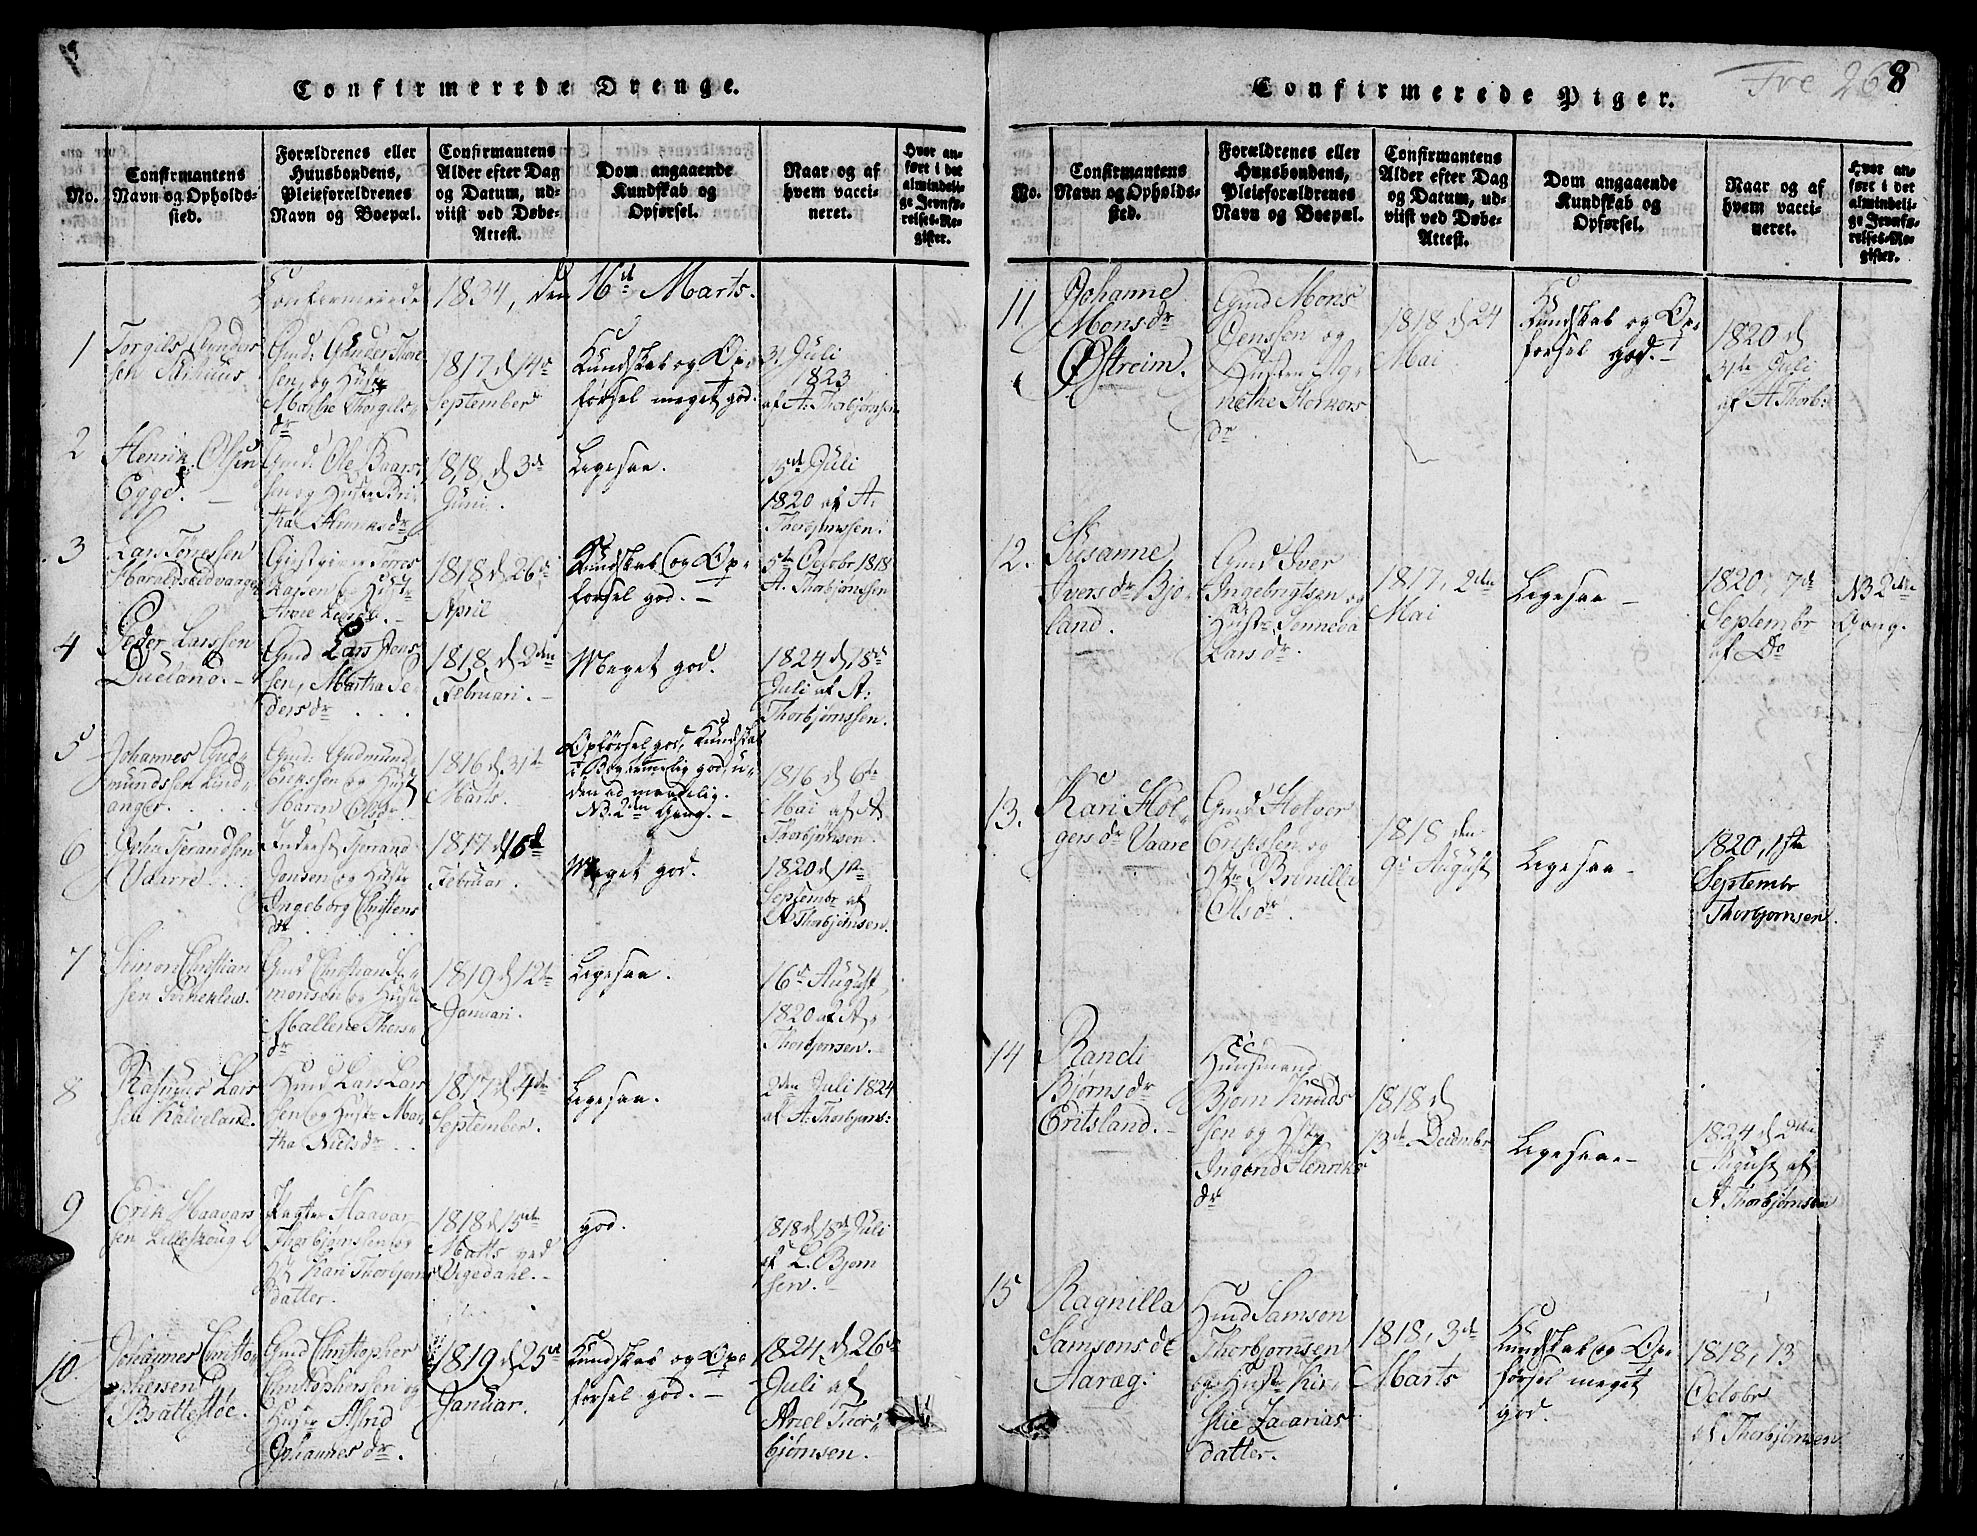 Confirmerede Drenge.
No.
Confirmantens
Navn og Opholds-
sted.
Forældrenes eller
Huusbondens,
Pleieforældrenes
Navn og Boepæl.
Confirmantens
Alder efter Dag
og Datum, ud-
viist ved Døbe-
Attest.
Dom angaaende
Kundskab og
Opførsel.
Naar og af
hvem vacci-
neret.
Hvor an-
ført i det
almindeli-
ge Jevnfø-
relses-Re-
gister.
Confirmerede 1834, den 16d Marts.
1
Torgils Gunders
sen
Gmd: Gunder
sen, og Hustr
Marthe Thorgils
dr
1817 d 14
September
Kundskab og Op-
førsel meget god.
3 Juli
1823
af A: Thorbjørnsen
2
Henrik Olsen
Egge.
Gmd: Ole Baars
sen og Hustr Bri
tha Henriks dr
1818, d 3d
Juni.
Ligesaa.
15d Juli
1820 af A.
Thorbjørnssen.
3
Lars Tørressen
Haraldseidvangen
Giestgiver Tørres
Larssen og Hustr
1818 d 26
April
Kundskab og Op-
førsel god.
5te Octobr 1818
A. Thorbjørnssen
4
Peder Larssen
Qveland.
Gmd Lars Jens
sen, Martha Pe-
ders dr
1818 d 2den
Februari.
Meget god.
1824 d 18d
Juli af A:
Thorbjørnssen.
5
Johannes Gud-
mundssen Lind-
anger.
Gmd: Gudmund
Erikssen og Hust
Maren Olsdr
1816 d. 31te
Marts.
Opførsel god, Kundskab
i Begrimmelig god u-
den ad maadelig.
NB. 2den Gang.
1816 d 6te
Mai af A
Thorbjørnsen.
6
John Tjerandsen
Vaarre.
Inderst Tjerand
Jonsen og Hustr
Ingeborg Christens
dr
1817 d 16d
Februar.
Meget god.
1820 d 1ste
Septembr af
A Thorbjørnsen.
7
Simon Christian
sen
Gmd Christian Si-
monsen og Hustr
Mallene Thors
dr
1819 d 12te
Januari.
Ligesaa.
16d August
1820 af A.
Thorbjørnsen.
8
Rasmus Lars
sen Kalveland.
Hmd Lars Lars
sen og Hustr Mar
tha Niels dr
1817 d 4de
September.
Ligesaa.
2den Juli 1824
af A. Thorbjørns:
9
Erik Haavars
sen Lilleskoug
Pagter Haavar
Thorbjørnssen og
H. Kari Thorbjørns
datter.
1818 d 15de
Marts ved
Vigedahl.
god.
1818 d 18d Juli
af L. Bjørn
sen.
10.
Johannes Christo
phersen
Brattestøe.
Gmd Christopher
Christophersen og
Hustr Astrid
Johannes dr.
1819 d 25de
Januar.
Kundskab og Op-
førsel god.
1824 d 26de
Juli af
Ariel Thor-
bjørnsen.
Confirmerede Piger.
Fre 26
8
No.
Confirmantens
Navn og Opholds-
sted.
Forældrenes eller
Huusbondens,
Pleieforældrenes
Navn og Boepæl.
Confirmantens
Alder efter Dag
og Datum, ud-
viist ved Døbe-
Attest.
Dom angaaende
Kundskab og
Opførsel.
Naar og af
hvem vacci-
neret.
Hvor an-
ført i det
almindeli-
ge Jevnfø-
relses-Re-
gister.
11
Johanne
Mons dr
Østreim.
Gmd Mons
Jenssen og
Hustru Ag-
nethe Storkors
dr
1818 d 24
Mai
Kundskab og Op-
førsel god.
1820 d
31te Juli
af A Thorb:
12.
Susanne
Ivers dr Bjo
land.
Gmd Iver
Ingebrigtsen og
Hustr Sønneva
Lars dr.
1817, 2den
Mai
Ligesaa
1820, 7d
Septembr
af Do
NB 2den
Gang.
13.
Kari Hol-
gers dr Vaare
Gmd Holver
Erikssen og
Hstr Bronilla
Ols dr.
1818 den
9d August
Ligesaa
1820, 1ste
Septembr
Thorbjørnsen.
14
Randi
Bjørns dr
Eritsland.
Huusmand
Bjørn Knuds
sen og Hstr
Ingerid Henriks
dr
1818 d
13de Decembr
Ligesaa
1824 d 2den
August af
A Thorbjørnsen
15
Ragnilla
Samsons dr
Aaræg.
Hmd Samson
Thorbjørnsen
og Hustr Kir-
stie Zacarias
datter.
1818, 3d
Marts
Kundskab og Op-
førsel meget
god.
1818, 13
Octobr
af Thorbjørnsen